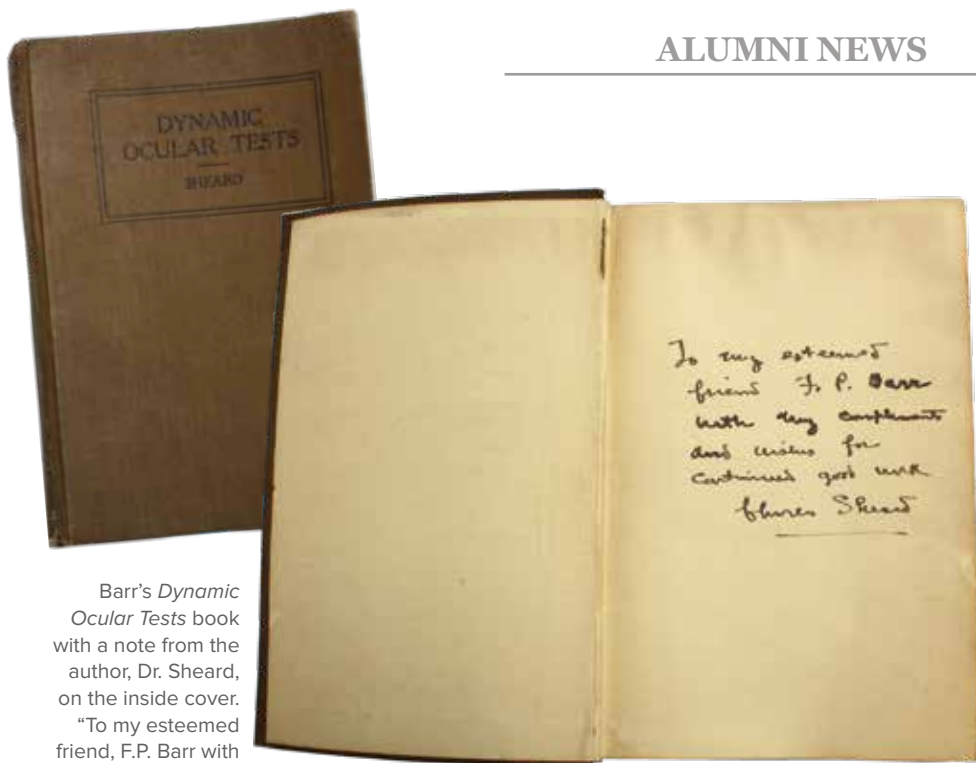 ALUMNI NEWS
DYNAMIC
OCULAR TESTS
SHEARD
To my esteemed
friend F. P. Barr
with my compliments
and wishes for
continued good work
Charles Sheard
Barr's Dynamic
Ocular Tests book
with a note from the
author, Dr. Sheard,
on the inside cover.
“To my esteemed
friend, F.P. Barr with